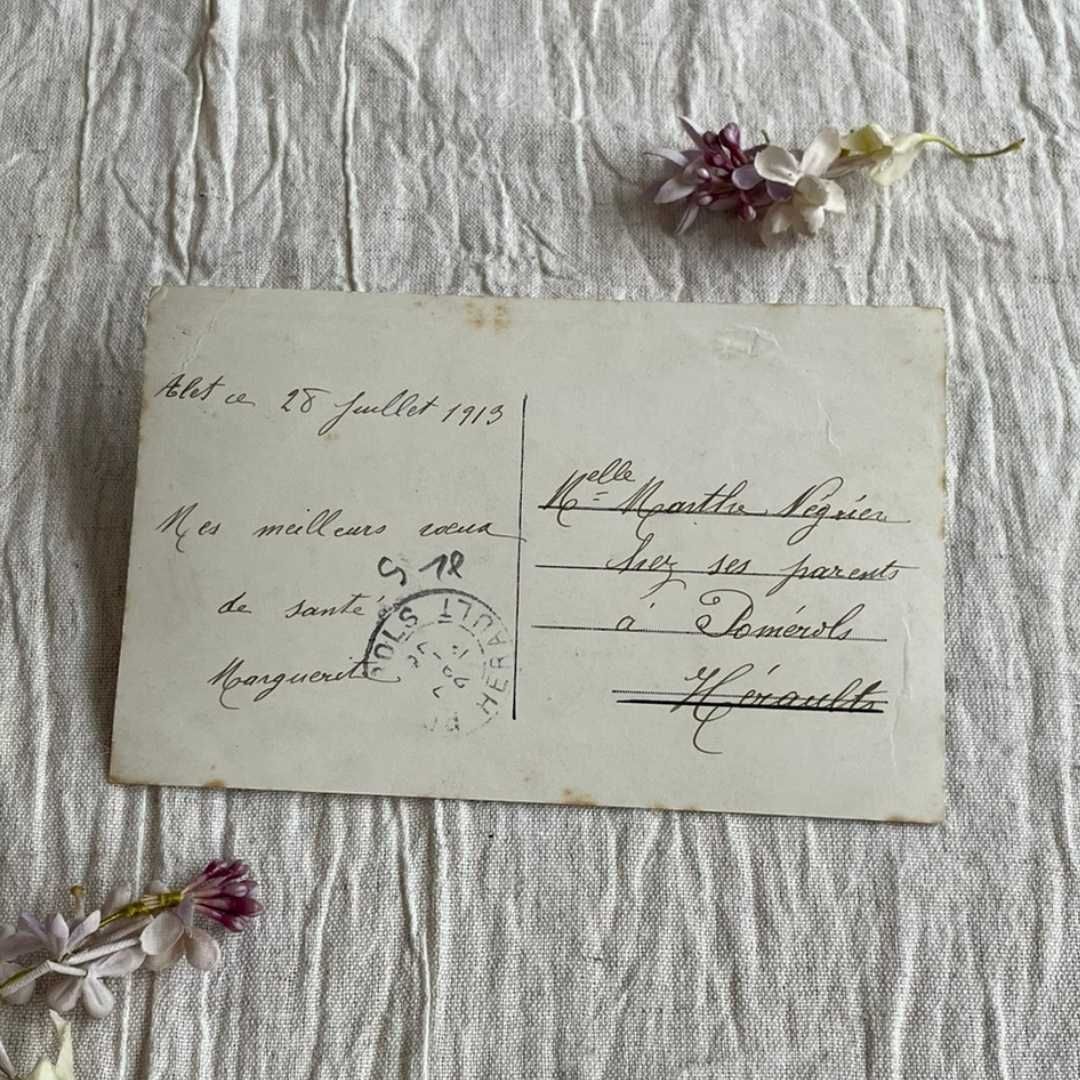 Alet ce 28 Juillet 1913
Mes meilleurs vœux
de santé
Marguerite
Melle Marthe Négrier
chez ses parents
à Pomérols
Hérault
HERAULT